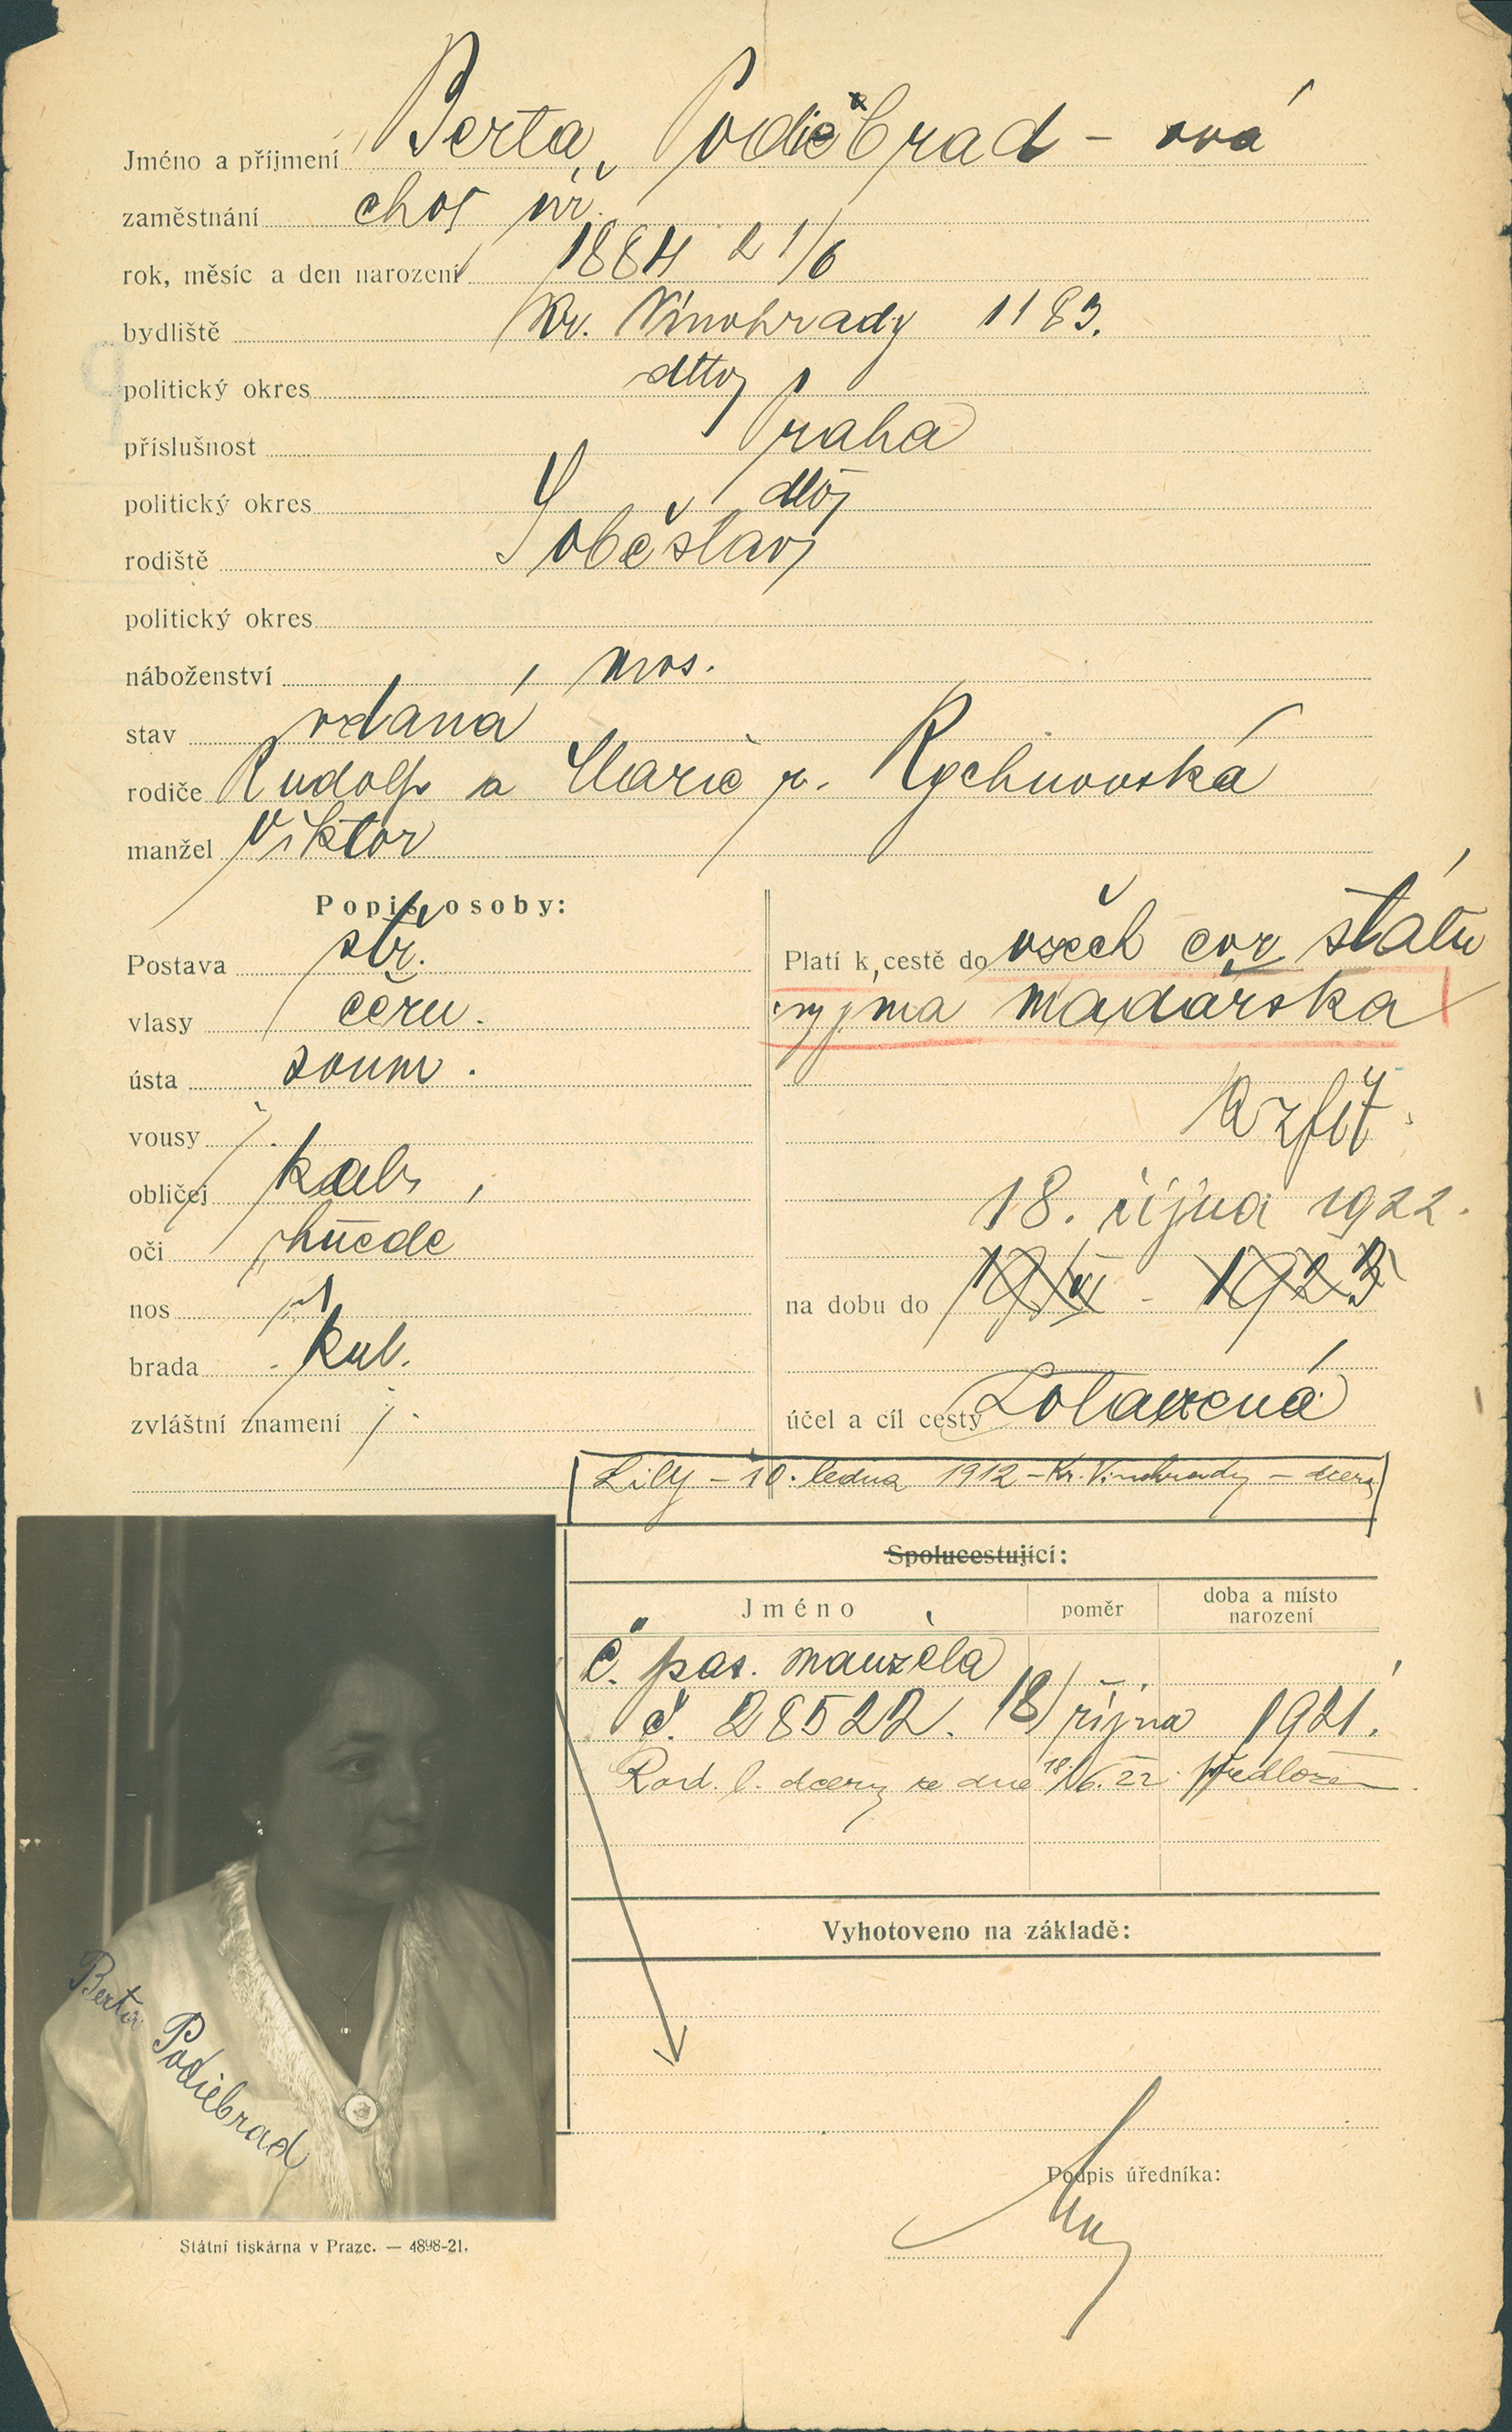 Jméno a příjmení Berta Poděbrad - ová
zaměstnání choť úř.
rok, měsíc a den narození 1884 21/6
bydliště Kr. Vinohrady 1183.
politický okres dtto
příslušnost Praha
politický okres dtto
rodiště Soběslav
politický okres
náboženství mos.
stav vdaná
rodiče Rudolf a Marie r. Rychnovská
manžel Viktor
Popis osoby:
Postava stř.
vlasy čern.
ústa soum.
vousy
obličej kul.
oči hnědé
nos
brada kul.
zvláštní znamení
Platí k cestě do všech evr. států
vyjma Maďarska
18. října 1922.
na dobu do 19/VI - 1923
účel a cíl cesty Zotavená
Lily - 10. ledna 1912 - Kr. Vinohrady - dcera
Spolucestující:
Jméno poměr doba a místo narození
č. pas. manžela
č. 28522. 18/října 1921.
Rod. l. dcery ze dne 18/6. 22. předložen
Vyhotoveno na základě:
Podpis úředníka:
Berta Podiebrad
Státní tiskárna v Praze. — 4898-21.